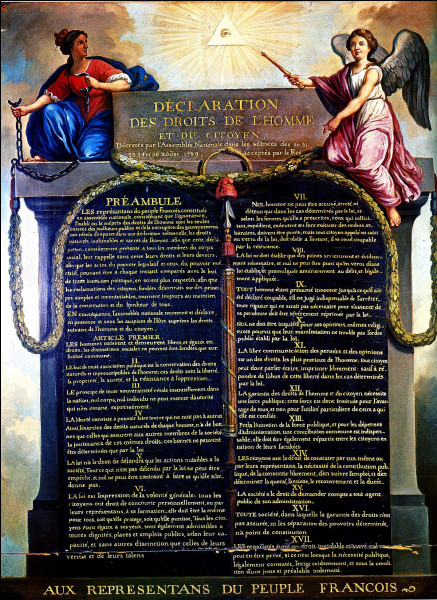 DÉCLARATION
DES DROITS DE L'HOMME
ET DU CITOYEN,
Décrétés par l'Assemblée Nationale dans les séances des 20, 21
23, 24 et 26 août 1789, acceptés par le Roi
PRÉAMBULE
LES représentans du peuple François, constitués
en assemblée nationale, considérant que l'ignorance,
l'oubli ou le mépris des droits de l'homme sont les seules
causes des malheurs publics et de la corruption des gouvernemens
ont résolu d'exposer dans une déclaration solemnelle, les droits
naturels, inaliénables et sacrés de l'homme: afin que cette décla-
ration, constamment présente à tous les membres du corps
social, leur rappelle sans cesse leurs droits et leurs devoirs;
afin que les actes du pouvoir législatif et ceux du pouvoir exé-
cutif, pouvant être à chaque instant comparés avec le but
de toute institution politique, en soient plus respectés; afin que
les réclamations des citoyens, fondées désormais sur des princi-
pes simples et incontestables, tournent toujours au maintien
de la constitution et du bonheur de tous.
EN conséquence, l'assemblée nationale reconnoit et déclare,
en présence et sous les auspices de l'Être suprême les droits
suivans de l'homme et du citoyen.
ARTICLE PREMIER.
LES hommes naissent et demeurent libres et égaux en
droits; les distinctions sociales ne peuvent être fondées que sur
l'utilité commune.
II.
LE but de toute association politique est la conservation des droits
naturels et imprescriptibles de l'homme; ces droits sont la liberté,
la propriété, la sureté, et la résistance à l'oppression.
III.
LE principe de toute souveraineté réside essentiellement dans
la nation, nul corps, nul individu ne peut exercer d'autorité
qui n'en émane expressément.
LA liberté consiste à pouvoir faire tout ce qui ne nuit pas à autrui
Ainsi l'exercice des droits naturels de chaque homme, n'a de bor-
nes que celles qui assurent aux autres membres de la société
la jouissance de ces mêmes droits; ces bornes ne peuvent
être déterminées que par la loi.
LA loi n'a le droit de défendre que les actions nuisibles à la
société. Tout ce qui n'est pas défendu par la loi ne peut être
empêché, et nul ne peut être contraint à faire ce qu'elle n'or-
donne pas.
VI.
LA loi est l'expression de la volonté générale; tous les
citoyens ont droit de concourir personnellement, ou par
leurs représentans, à sa formation; elle doit être la même
pour tous, soit qu'elle protege, soit qu'elle punisse. Tous les citoy-
ens étant égaux à ses yeux, sont également admissibles à
toutes dignités, places et emplois publics, selon leur ca-
pacité, et sans autres distinction que celles de leurs
vertus et de leurs talens.
VII.
NUL homme ne peut être accusé, arrêté, ni
détenu que dans les cas déterminés par la loi, et
selon les formes qu'elle a prescrites, ceux qui sollici-
tent, expédient, exécutent ou font exécuter des ordres ar-
bitraires, doivent être punis; mais tout citoyen appelé ou saisi
en vertu de la loi, doit obéir à l'instant, il se rend coupable
par la résistance.
LA loi ne doit établir que des peines strictement et évidem-
ment nécessaires, et nul ne peut être puni qu'en vertu d'une
loi établie et promulguée antérieurement au délit, et légale-
ment appliquée.
IX.
TOUT homme étant présumé innocent jusqu'à ce qu'il ait
été déclaré coupable, s'il est jugé indispensable de l'arrêter,
toute rigueur qui ne serait pas nécessaire pour s'assurer de
sa personne doit être sévèrement réprimée par la loi.
X.
NUL ne doit être inquiété pour ses opinions, mêmes religi-
euses pourvu que leur manifestation ne trouble pas l'ordre
public établi par la loi.
XI.
LA libre communication des pensées et des opinions
est un des droits les plus précieux de l'homme; tout citoyen
peut donc parler, écrire, imprimer librement: sauf à ré-
pondre de l'abus de cette liberté dans les cas déterminés
par la loi.
XII.
LA garantie des droits de l'homme et du citoyen, nécessite
une force publique; cette force est donc instituée pour l'avan-
tage de tous, et non pour l'utilité particulière de ceux à qui
elle est confiée.
XIII.
Pour l'entretien de la force publique, et pour les dépenses
d'administration, une contribution commune est indispen-
sable; elle doit être également répartie entre les citoyens en
raison de leurs facultés.
XIV.
LES citoyens ont le droit de constater par eux même ou
par leurs représentans, la nécessité de la contribution pub-
lique, de la consentir librement, d'en suivre l'emploi, et d'en
déterminer la quotité, l'assiette, le recouvrement et la durée.
XV.
LA société a le droit de demander compte à tout agent
public de son administration.
XVI.
TOUTE société, dans laquelle la garantie des droits n'est
pas assurée, ni les séparation des pouvoirs déterminée,
n'a point de constitution.
XVII.
LES propriétés étant un droit inviolable et sacré, nul ne
peut en être privé, si ce n'est lorsque la nécessité publique,
légalement constatée, l'exige évidemment, et sous la condi-
tion d'une juste et préalable indemnité.
AUX REPRESENTANS DU PEUPLE FRANCOIS